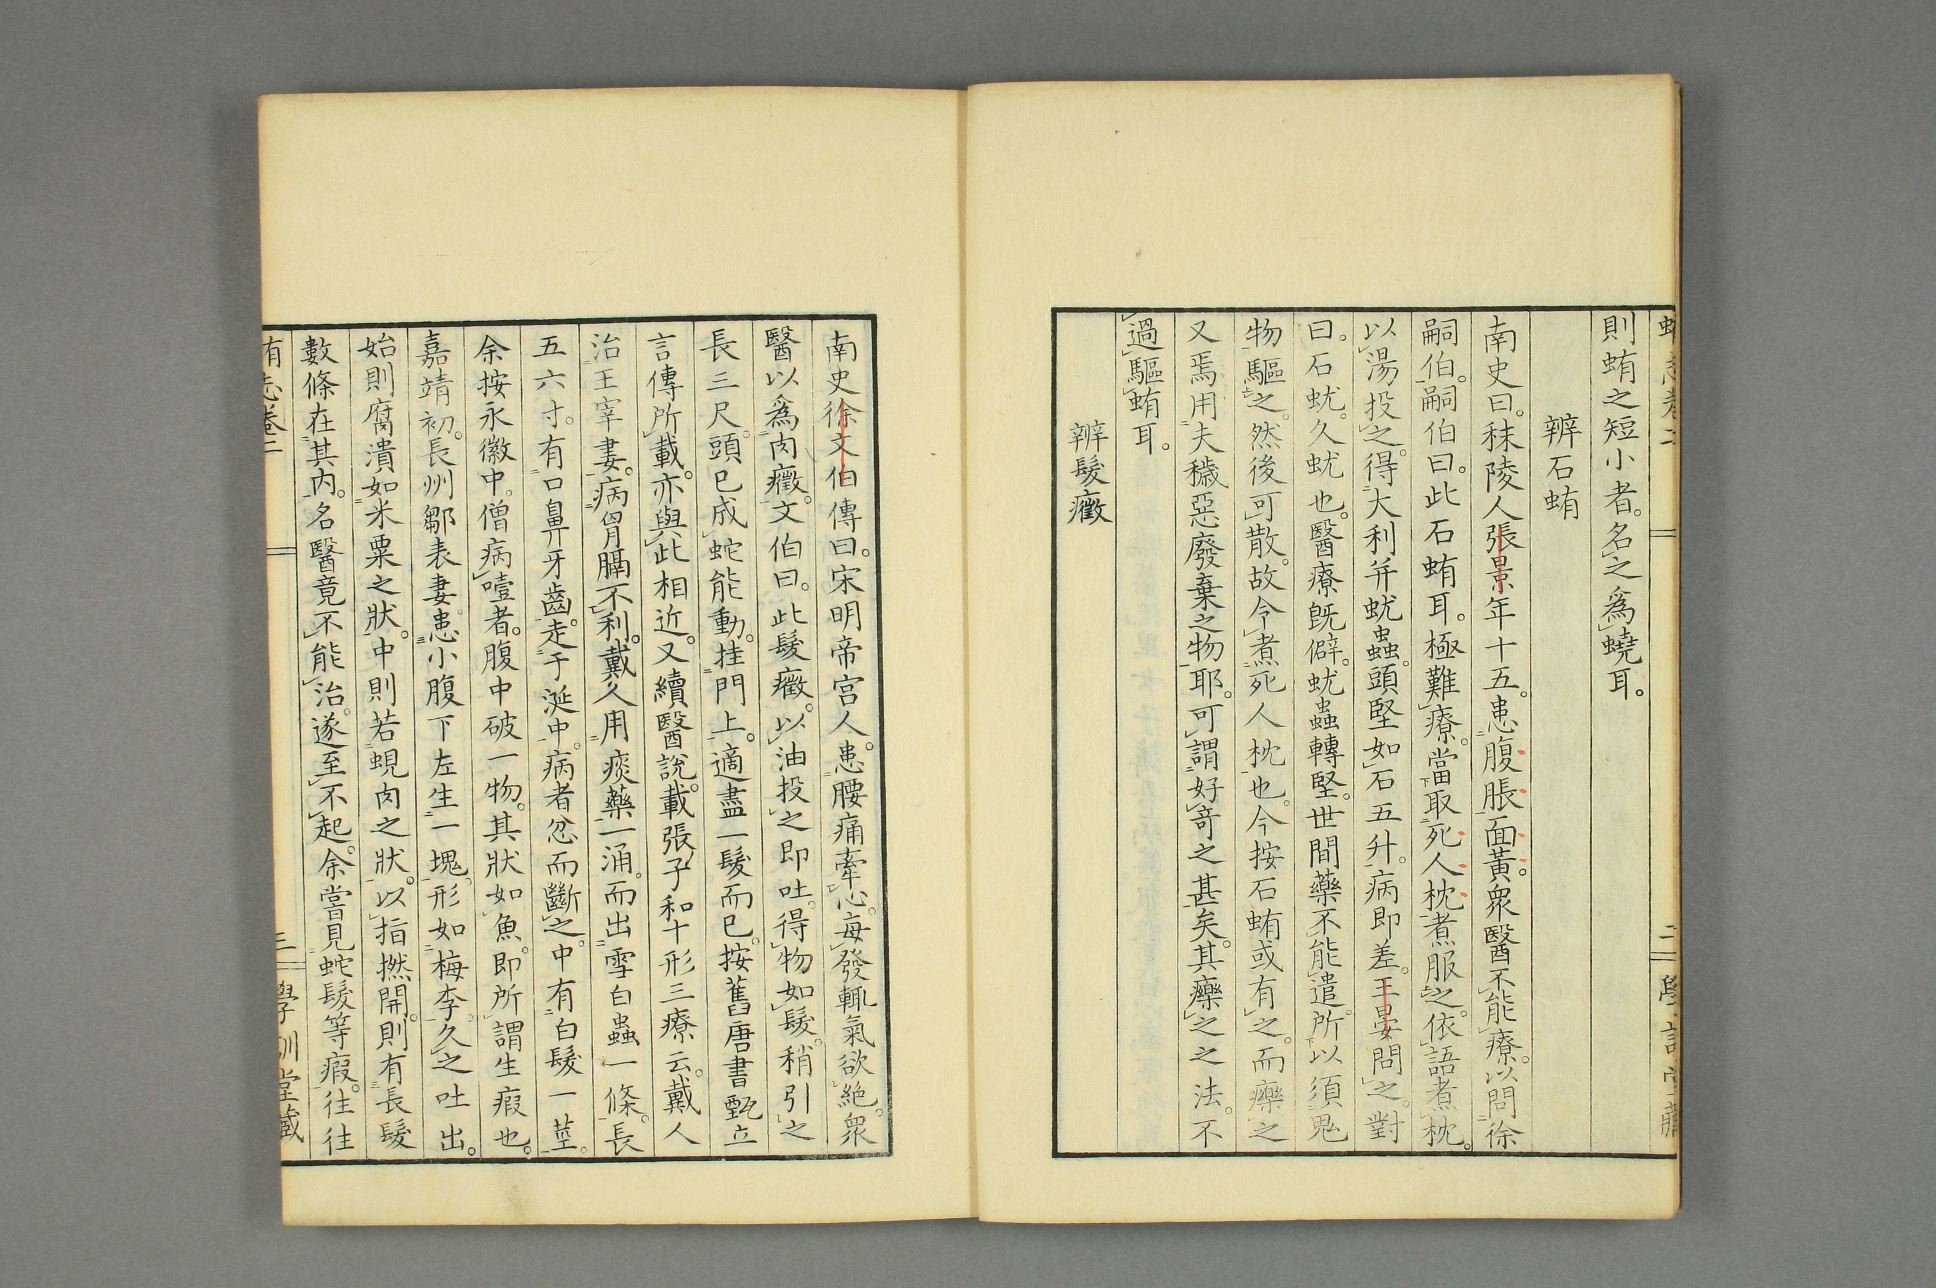 則蛕之短小者。名之爲蟯耳。
辨石蛕
南史曰。秣陵人張景年十五。患腹脹面黃。衆醫不能療。以問徐
嗣伯。嗣伯曰。此石蛕耳。極難療。當取死人枕煮服之。依語煮枕。
以湯投之。得大利并蚘蟲。頭堅如石五升。病即差。王晏問之。對
曰。石蚘。久蚘也。醫療既僻。蚘蟲轉堅。世間藥不能遣。所以須鬼
物驅之。然後可散。故令煮死人枕也。今按石蛕或有之。而藥之
又焉用夫穢惡廢棄之物耶。可謂好奇之甚矣。其藥之之法。不
過驅蛕耳。
辨髮癥
南史徐文伯傳曰。宋明帝宮人。患腰痛牽心。每發輒氣欲絕。衆
醫以爲肉癥。文伯曰。此髮癥。以油投之即吐。得物如髮。稍引之
長三尺。頭已成蛇能動。挂門上。適盡一髮而已。按舊唐書甄立
言傳所載。亦與此相近。又續醫說。載張子和十形三療云。戴人
治王宰妻。病胃膈不利。戴人用痰藥一涌。而出雪白蟲一條。長
五六寸。有口鼻牙齒。走于涎中。病者忿而斷之。中有白髮一莖。
余按永徽中。僧病噎者。腹中破一物。其狀如魚。即所謂生瘕也。
嘉靖初。長州鄒表妻。患小腹下左生一塊。形如梅李。久之吐出。
始則腐潰如米粟之狀。中則若蜆肉之狀。以指撚開。則有長髮
數條在其內。名醫竟不能治。遂至不起。余嘗見蛇髮等瘕。往往
蛕志卷二
三
學訓堂藏